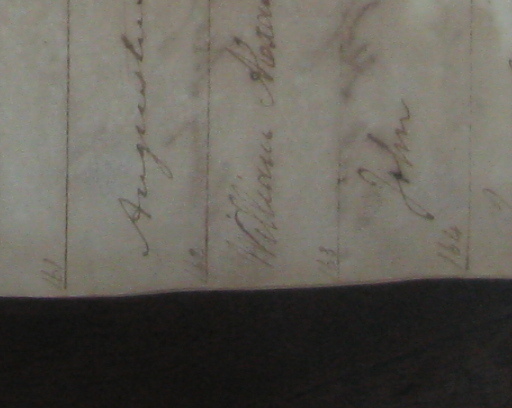 161
Augustus
162
William Alexan
163
John
164